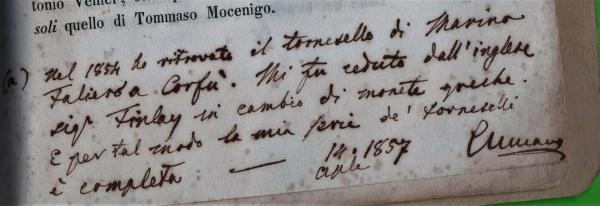 tonio Venier,
soli quello di Tommaso Mocenigo.
(a) Nel 1854 ho ritrovato il tornesello di Marino
Faliero a Corfù. Mi fu ceduto dall'inglese
sigr Finlay in cambio di monete greche.
E per tal modo la mia serie de' torneselli
è completa — 14. aple 1857